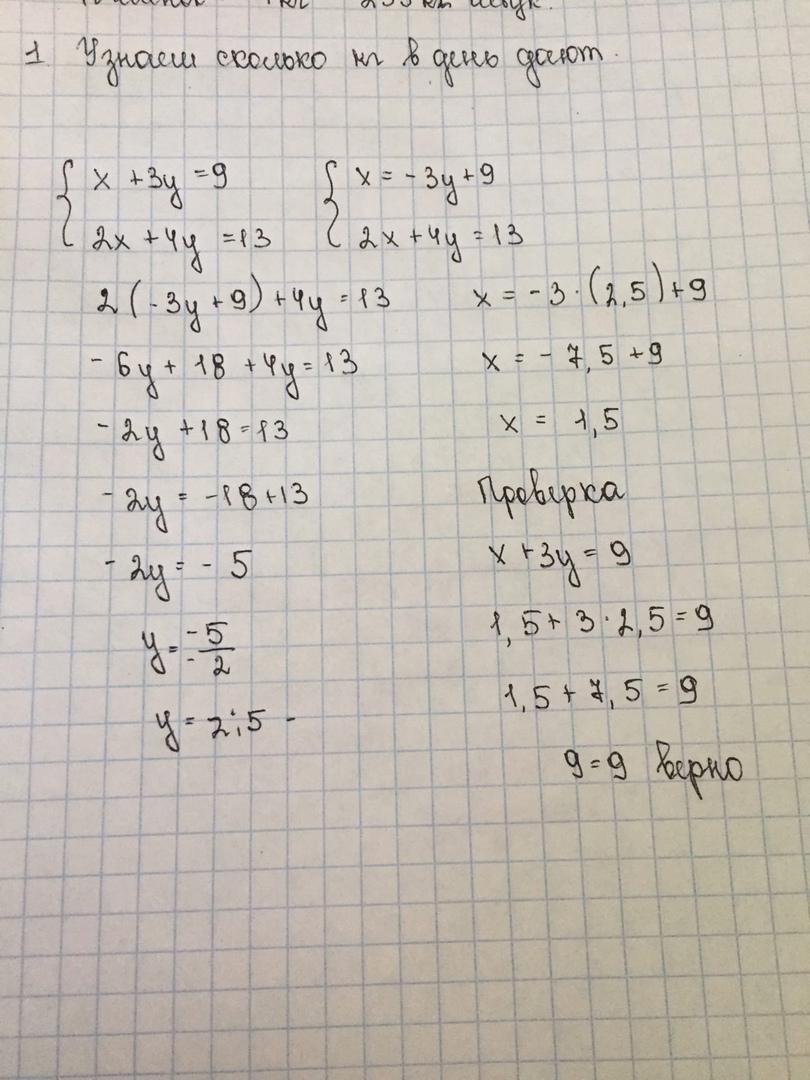 1 Узнаем сколько кг в день дают.
{ x + 3y = 9
2x + 4y = 13
{ x = - 3y + 9
2x + 4y = 13
2 (-3y + 9) + 4y = 13
- 6y + 18 + 4y = 13
- 2y + 18 = 13
- 2y = -18 + 13
- 2y = - 5
y = -5 / -2
y = 2,5 -
x = - 3 · (2,5) + 9
x = - 7,5 + 9
x = 1,5
Проверка
x + 3y = 9
1,5 + 3 · 2,5 = 9
1,5 + 7,5 = 9
9 = 9 верно